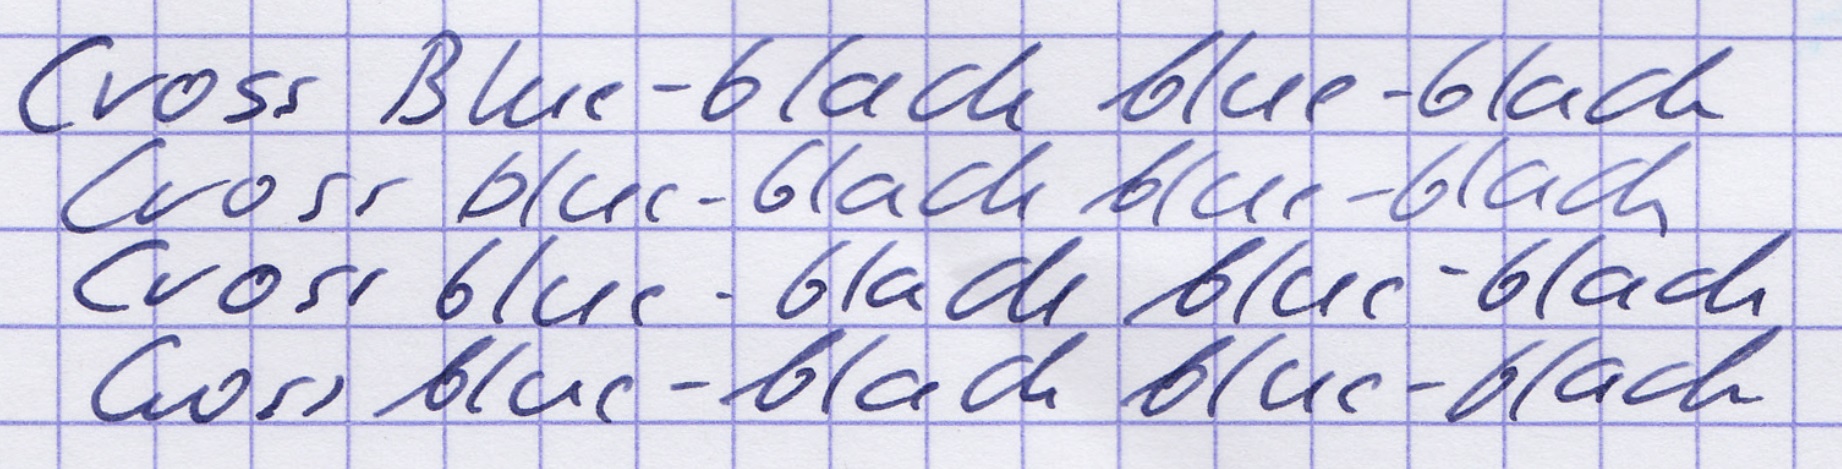 Cross Blue-black blue-black
Cross blue-black blue-black
Cross blue-black blue-black
Cross blue-black blue-black